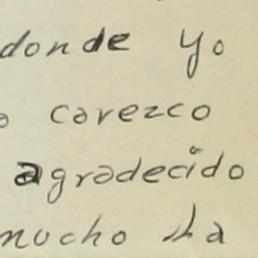 donde yo
o carezco
agradecido
mucho ha